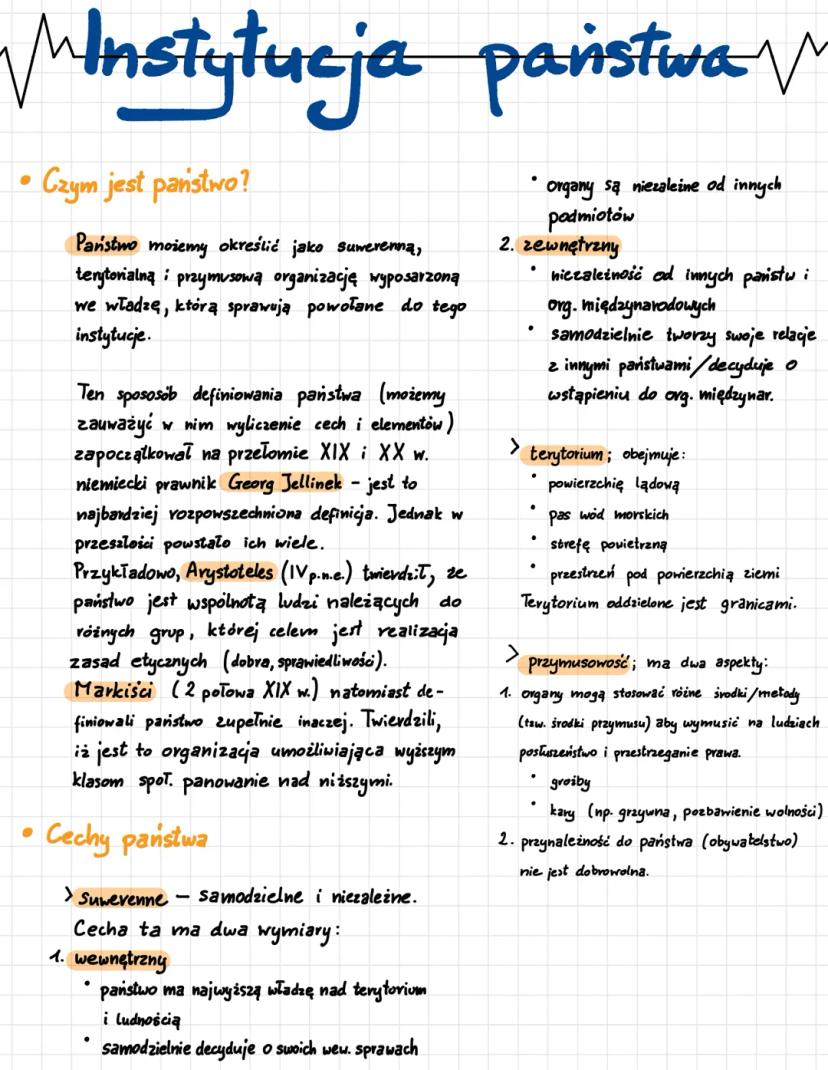 Instytucja państwa
• Czym jest państwo?
Państwo możemy określić jako suwerenną,
terytorialną i przymusową organizację wyposarzoną
we władzę, którą sprawują powołane do tego
instytucje.
Ten spososób definiowania państwa (możemy
zauważyć w nim wyliczenie cech i elementów)
zapoczątkował na przełomie XIX i XX w.
niemiecki prawnik Georg Jellinek – jest to
najbardziej rozpowszechniona definicja. Jednak w
przeszłości powstało ich wiele.
Przykładowo, Arystoteles (IV p.n.e.) twierdził, że
państwo jest wspólnotą ludzi należących do
różnych grup, której celem jest realizacja
zasad etycznych (dobra, sprawiedliwości).
Markiści (2 połowa XIX w.) natomiast de-
finiowali państwo zupełnie inaczej. Twierdzili,
iż jest to organizacja umożliwiająca wyższym
klasom społ. panowanie nad niższymi.
• Cechy państwa
> Suwerenne – samodzielne i niezależne.
Cecha ta ma dwa wymiary:
1. wewnętrzny
• państwo ma najwyższą władzę nad terytorium
i ludnością
• samodzielnie decyduje o swoich wew. sprawach
• organy są niezależne od innych
podmiotów
2. zewnętrzny
• niezależność od innych państw i
org. międzynarodowych
• samodzielnie tworzy swoje relacje
z innymi państwami/decyduje o
wstąpieniu do org. międzynar.
> terytorium; obejmuje:
• powierzchię lądową
• pas wód morskich
• strefę powietrzną
• przestrzeń pod powierzchią ziemi
Terytorium oddzielone jest granicami.
> przymusowość; ma dwa aspekty:
1. organy mogą stosować różne środki/metody
(tzw. środki przymusu) aby wymusić na ludziach
posłuszeństwo i przestrzeganie prawa.
• groźby
• kary (np. grzywna, pozbawienie wolności)
2. przynależność do państwa (obywatelstwo)
nie jest dobrowolna.